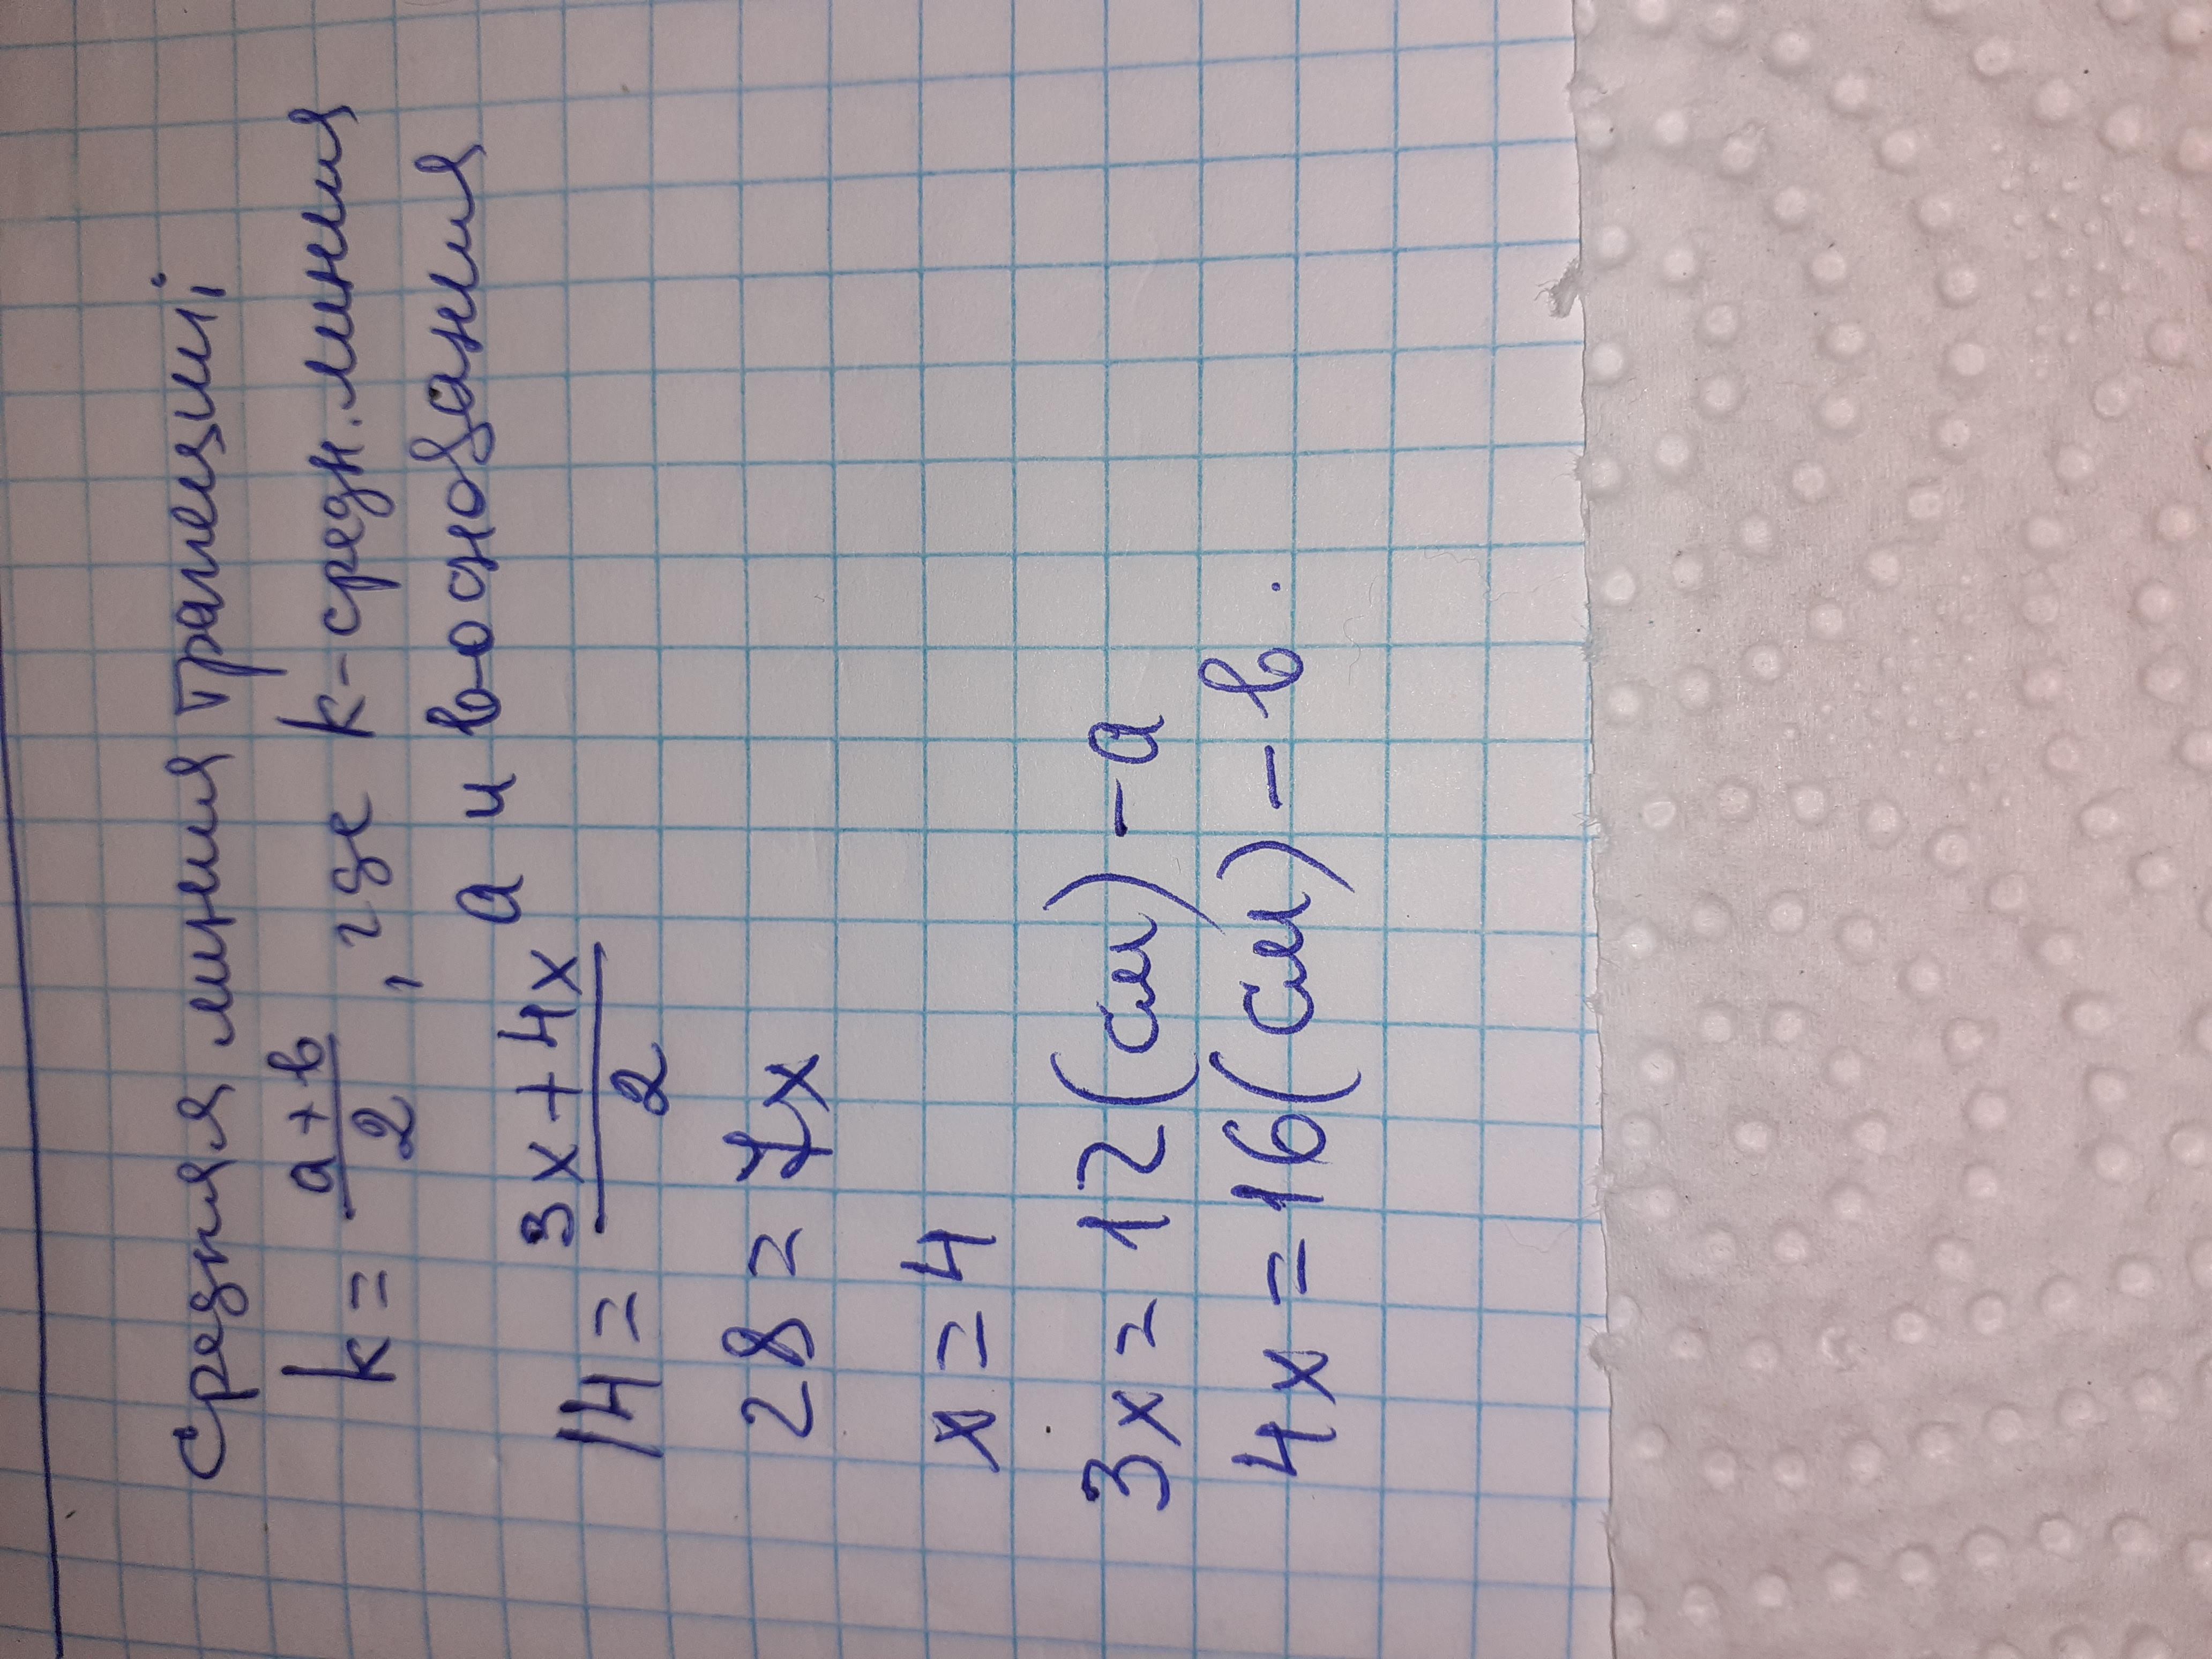 Средняя линия трапеции;
k = a+b/2, где k-средн.линия
a и b-основания
14 = 3x+4x/2
28 = 7x
x = 4
3x = 12(см) - a
4x = 16(см) - b.